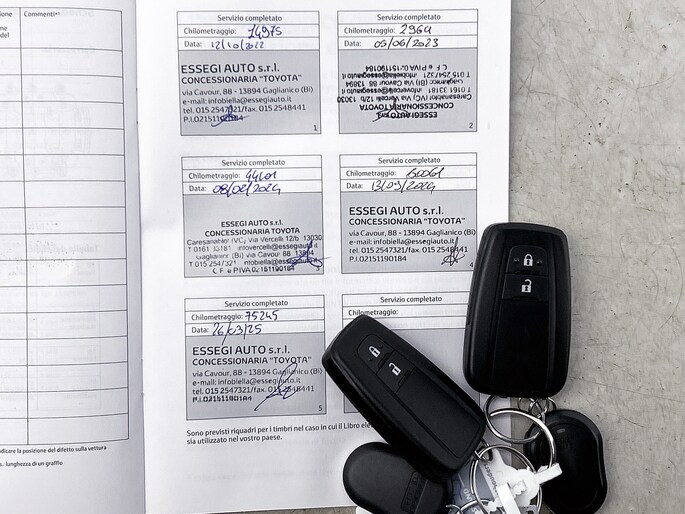 zione
Commenti*¹
me
del
Servizio completato
Chilometraggio: 14975
Data: 12/10/2022
ESSEGI AUTO s.r.l.
CONCESSIONARIA "TOYOTA"
via Cavour, 88 - 13894 Gaglianico (Bi)
e-mail: infobiella@essegiauto.it
tel. 015 2547321/fax. 015 2548441
P.I.02151190184
1
Servizio completato
Chilometraggio: 2964
Data: 05/06/2023
ESSEGI AUTO s.r.l.
CONCESSIONARIA TOYOTA
Caresanablot (VC) Via Vercelli 12/b 13030
T 0161 33181 infovercelli@essegiauto.it
Gaglianico (BI) Via Cavour 88 13894
T 015 2547321 infobiella@essegiauto.it
C.F. e P.IVA 02151190184
2
Servizio completato
Chilometraggio: 44401
Data: 08/02/2024
ESSEGI AUTO s.r.l.
CONCESSIONARIA TOYOTA
Caresanablot (VC) Via Vercelli 12/b 13030
T 0161 33181 infovercelli@essegiauto.it
Gaglianico (BI) Via Cavour 88 13894
T 015 2547321 infobiella@essegiauto.it
C.F. e P.IVA 02151190184
3
Servizio completato
Chilometraggio: 60061
Data: 13/09/2024
ESSEGI AUTO s.r.l.
CONCESSIONARIA "TOYOTA"
via Cavour, 88 - 13894 Gaglianico (Bi)
e-mail: infobiella@essegiauto.it
tel. 015 2547321/fax. 015 2548441
P.I.02151190184
4
Servizio completato
Chilometraggio: 75245
Data: 26/03/25
ESSEGI AUTO s.r.l.
CONCESSIONARIA "TOYOTA"
via Cavour, 88 - 13894 Gaglianico (Bi)
e-mail: infobiella@essegiauto.it
tel. 015 2547321/fax. 015 2548441
P.I.02151190184
5
Servizio completato
Chilometraggio:
Sono previsti riquadri per i timbri nel caso in cui il Libro ele
sia utilizzato nel vostro paese.
dicare la posizione del difetto sulla vettura
o.: lunghezza di un graffio